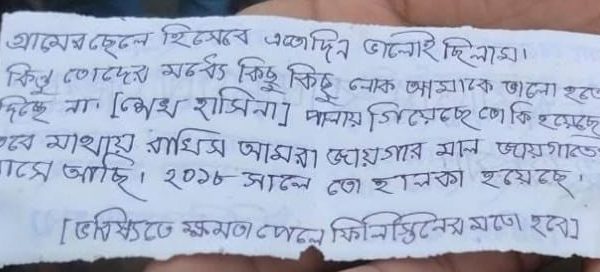 গ্রামের ছেলে হিসেবে এতোদিন ভালোই ছিলাম।
কিন্তু তোদের মধ্যে কিছু কিছু লোক আমাকে ভালো হতে
দিচ্ছে না। [শেখ হাসিনা] পালায় গিয়েছে তো কি হয়েছে
তবে মাথায় রাখিস আমরা জায়গার মাল জায়গাতে
আছি। ২০১৮ সালে তো হালকা হয়েছে।
[ভবিষ্যিতে ক্ষমতা পেলে ফিলিস্তিনের মতো হবে]